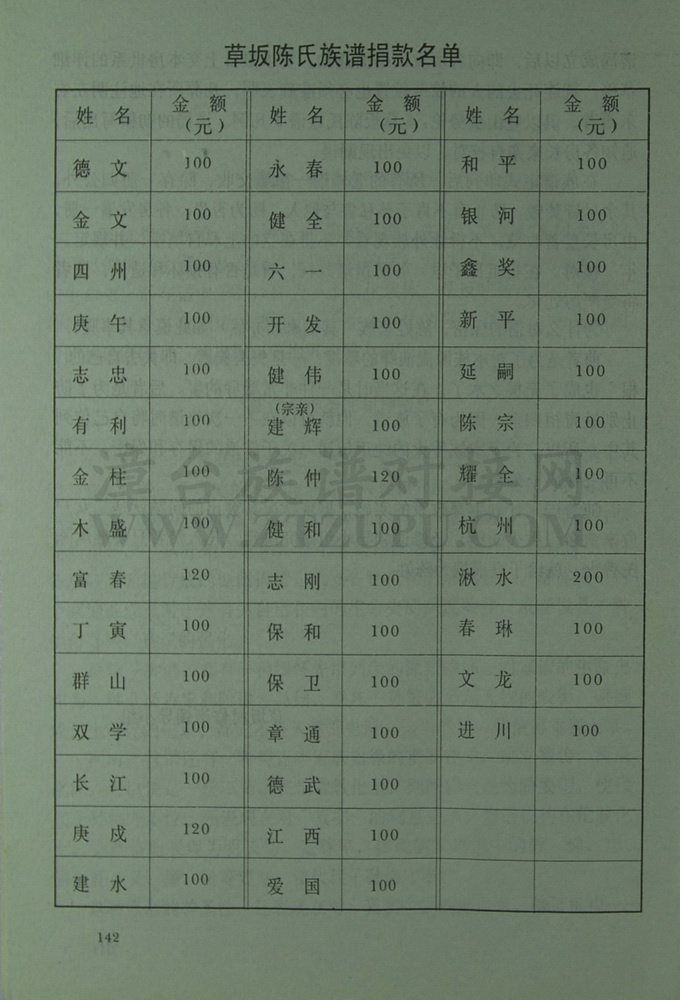 草坂陈氏族谱捐款名单
姓名 金额(元) 姓名 金额(元) 姓名 金额(元)
德文 100 永春 100 和平 100
金文 100 健全 100 银河 100
四州 100 六一 100 鑫奖 100
庚午 100 开发 100 新平 100
志忠 100 健伟 100 延嗣 100
有利 100 (宗亲)建辉 100 陈宗 100
金柱 100 陈仲 120 耀全 100
木盛 100 健和 100 杭州 100
富春 120 志刚 100 湫水 200
丁寅 100 保和 100 春琳 100
群山 100 保卫 100 文龙 100
双学 100 章通 100 进川 100
长江 100 德武 100
庚戍 120 江西 100
建水 100 爱国 100
漳台族谱对接网
WWW.ZTZUPU.COM
142